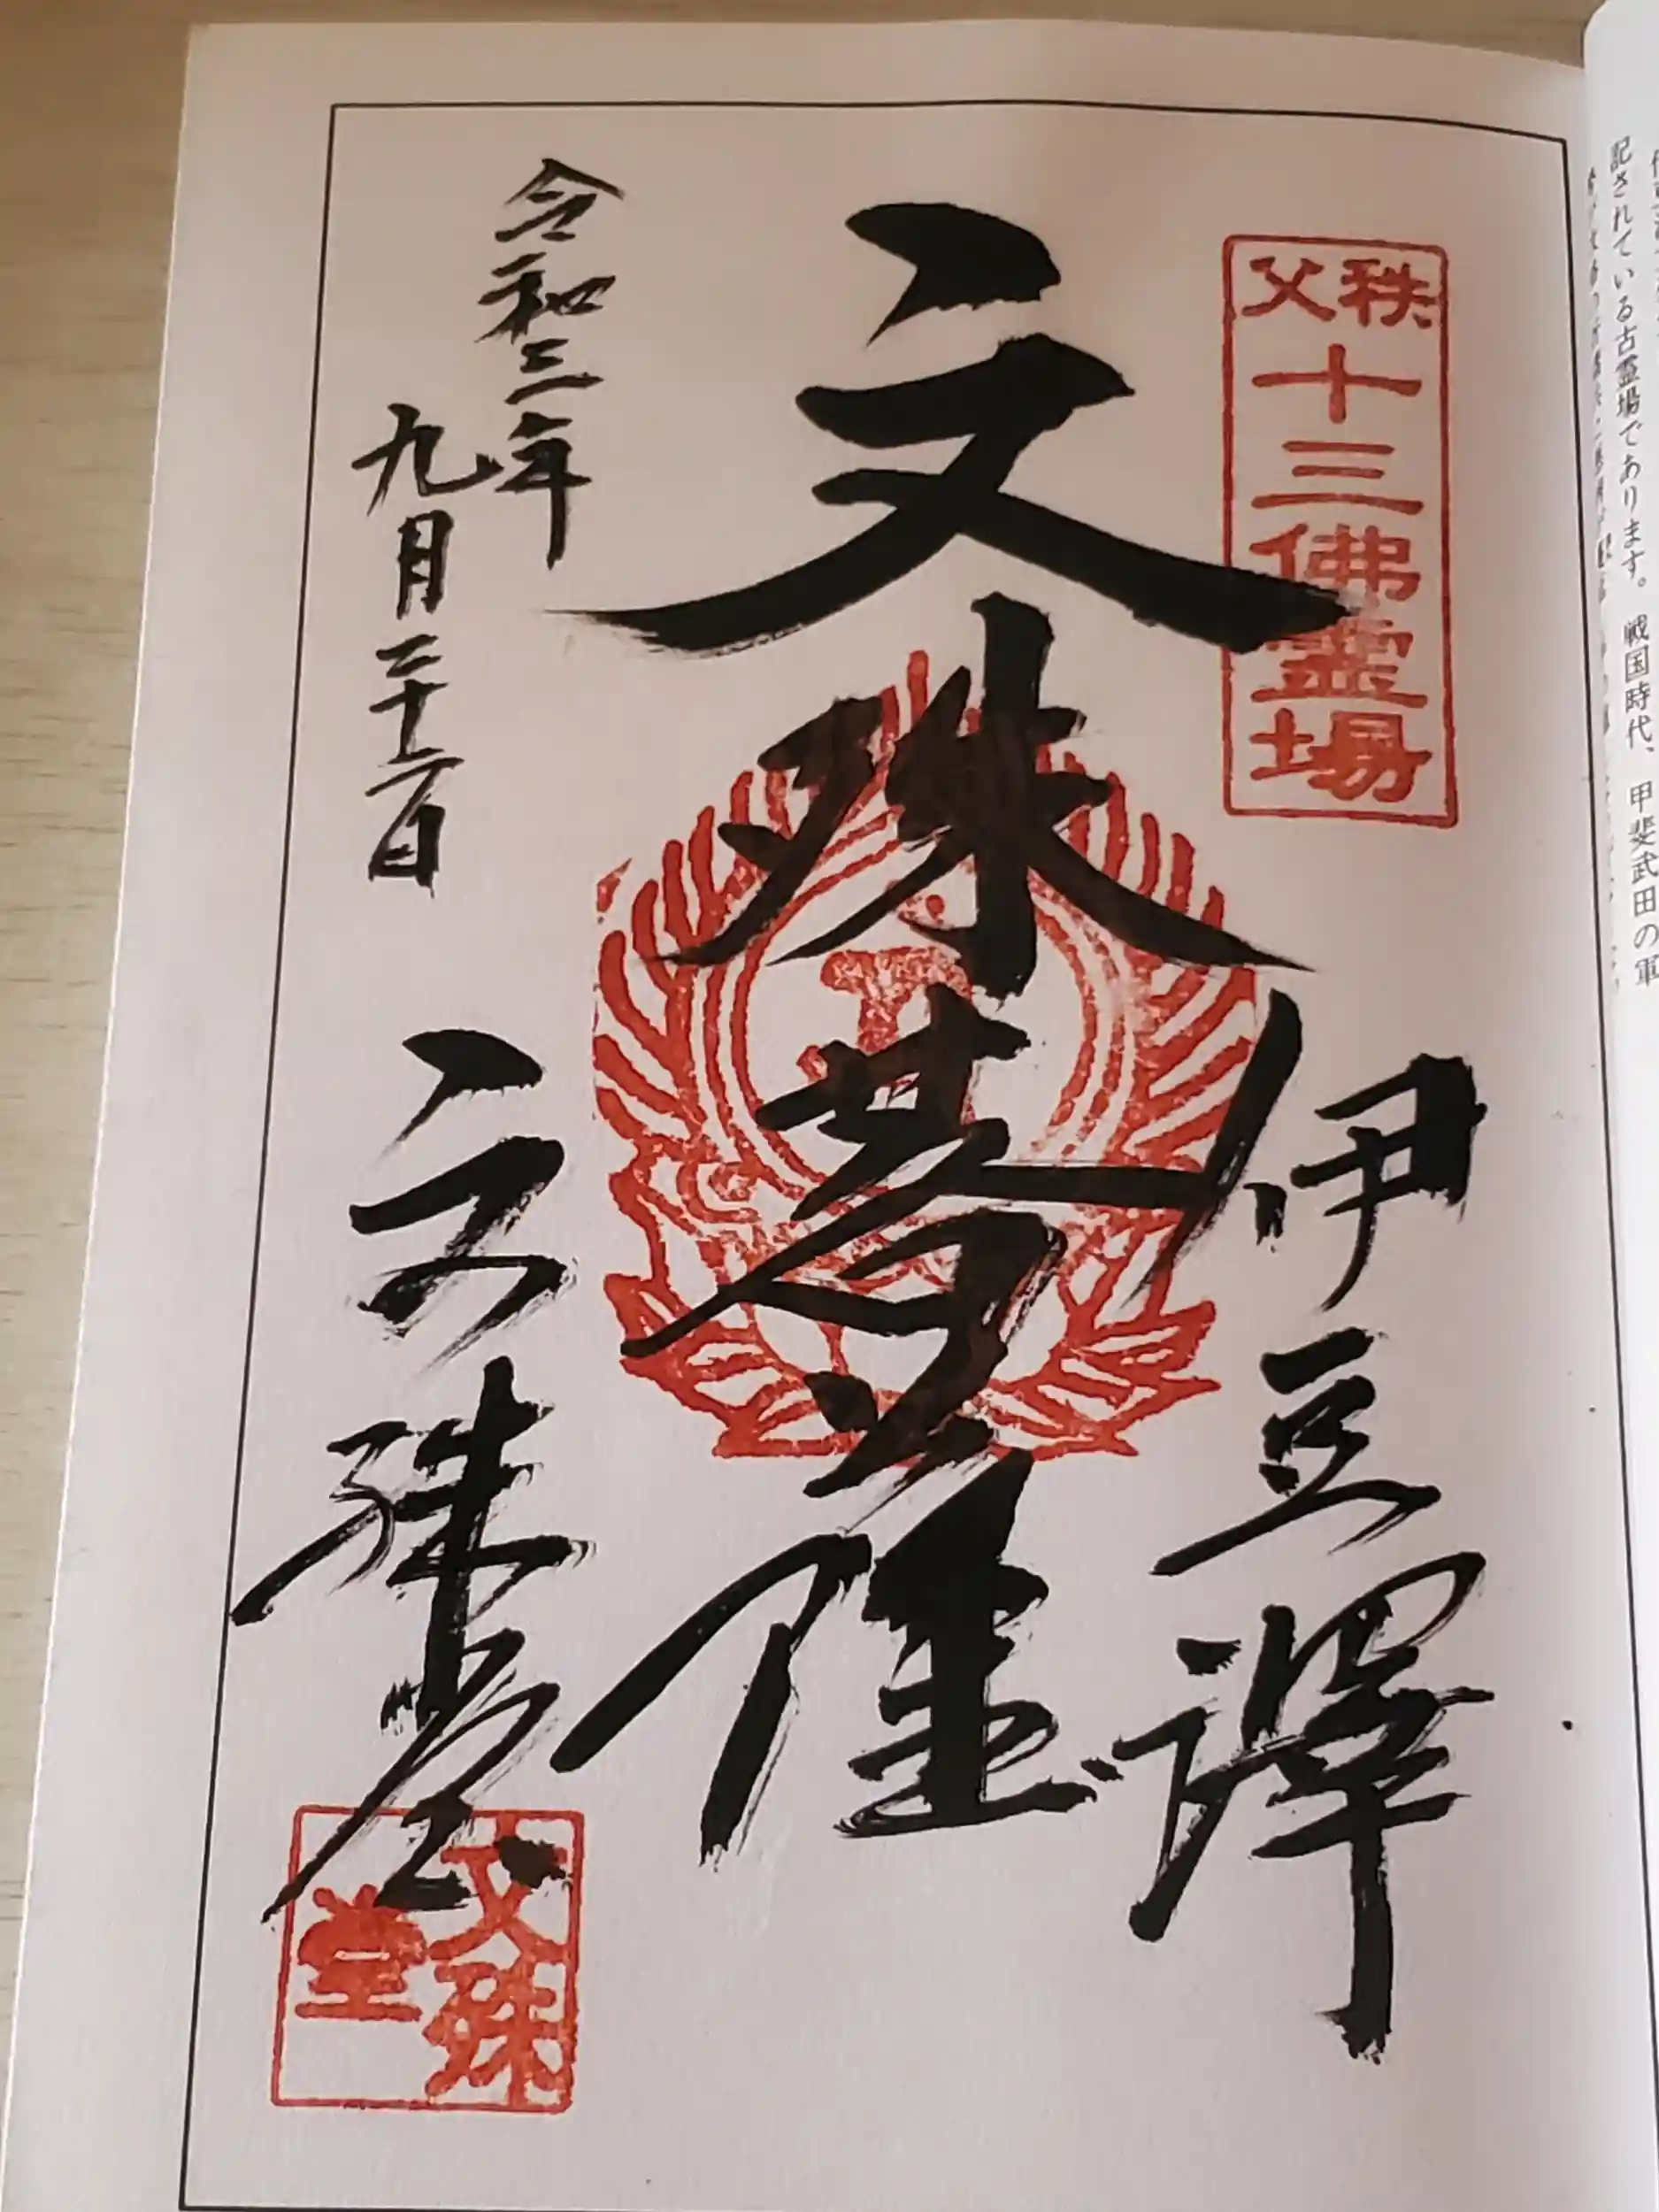 記されている古霊場であります。戦国時代、甲斐武田の軍
秩父
十三佛霊場
伊豆澤
文殊菩薩
令和三年
九月二十六日
文殊堂
文殊
堂